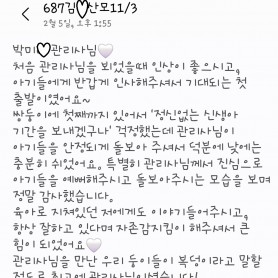 687김♥산모11/3
2월 5일, 오후 1:55
박미♥관리사님🤍
처음 관리사님을 뵈었을때 인상이 좋으시고,
아기들에게 반갑게 인사해주셔서 기대되는 첫
출발이였어요~
쌍둥이에 첫째까지 있어서 '정신없는 신생아
기간을 보내겠구나' 걱정했는데 관리사님이
아기들을 안정되게 돌보아 주셔서 덕분에 낮에는
충분히 쉬었어요. 특별히 관리사님께서 진심으로
아기들을 예뻐해주시고 돌보아주시는 모습을 보며
정말 감사했습니다.
육아로 지쳐있던 저에게도 이야기들어주시고,
항상 잘하고 있다며 자존감지킴이 해주셔서 큰
힘이 되었어요🤍
관리사님을 만난 우리 둥이들이 복덩이라고 말할
정도로 최고에 관리사님이셨습니다